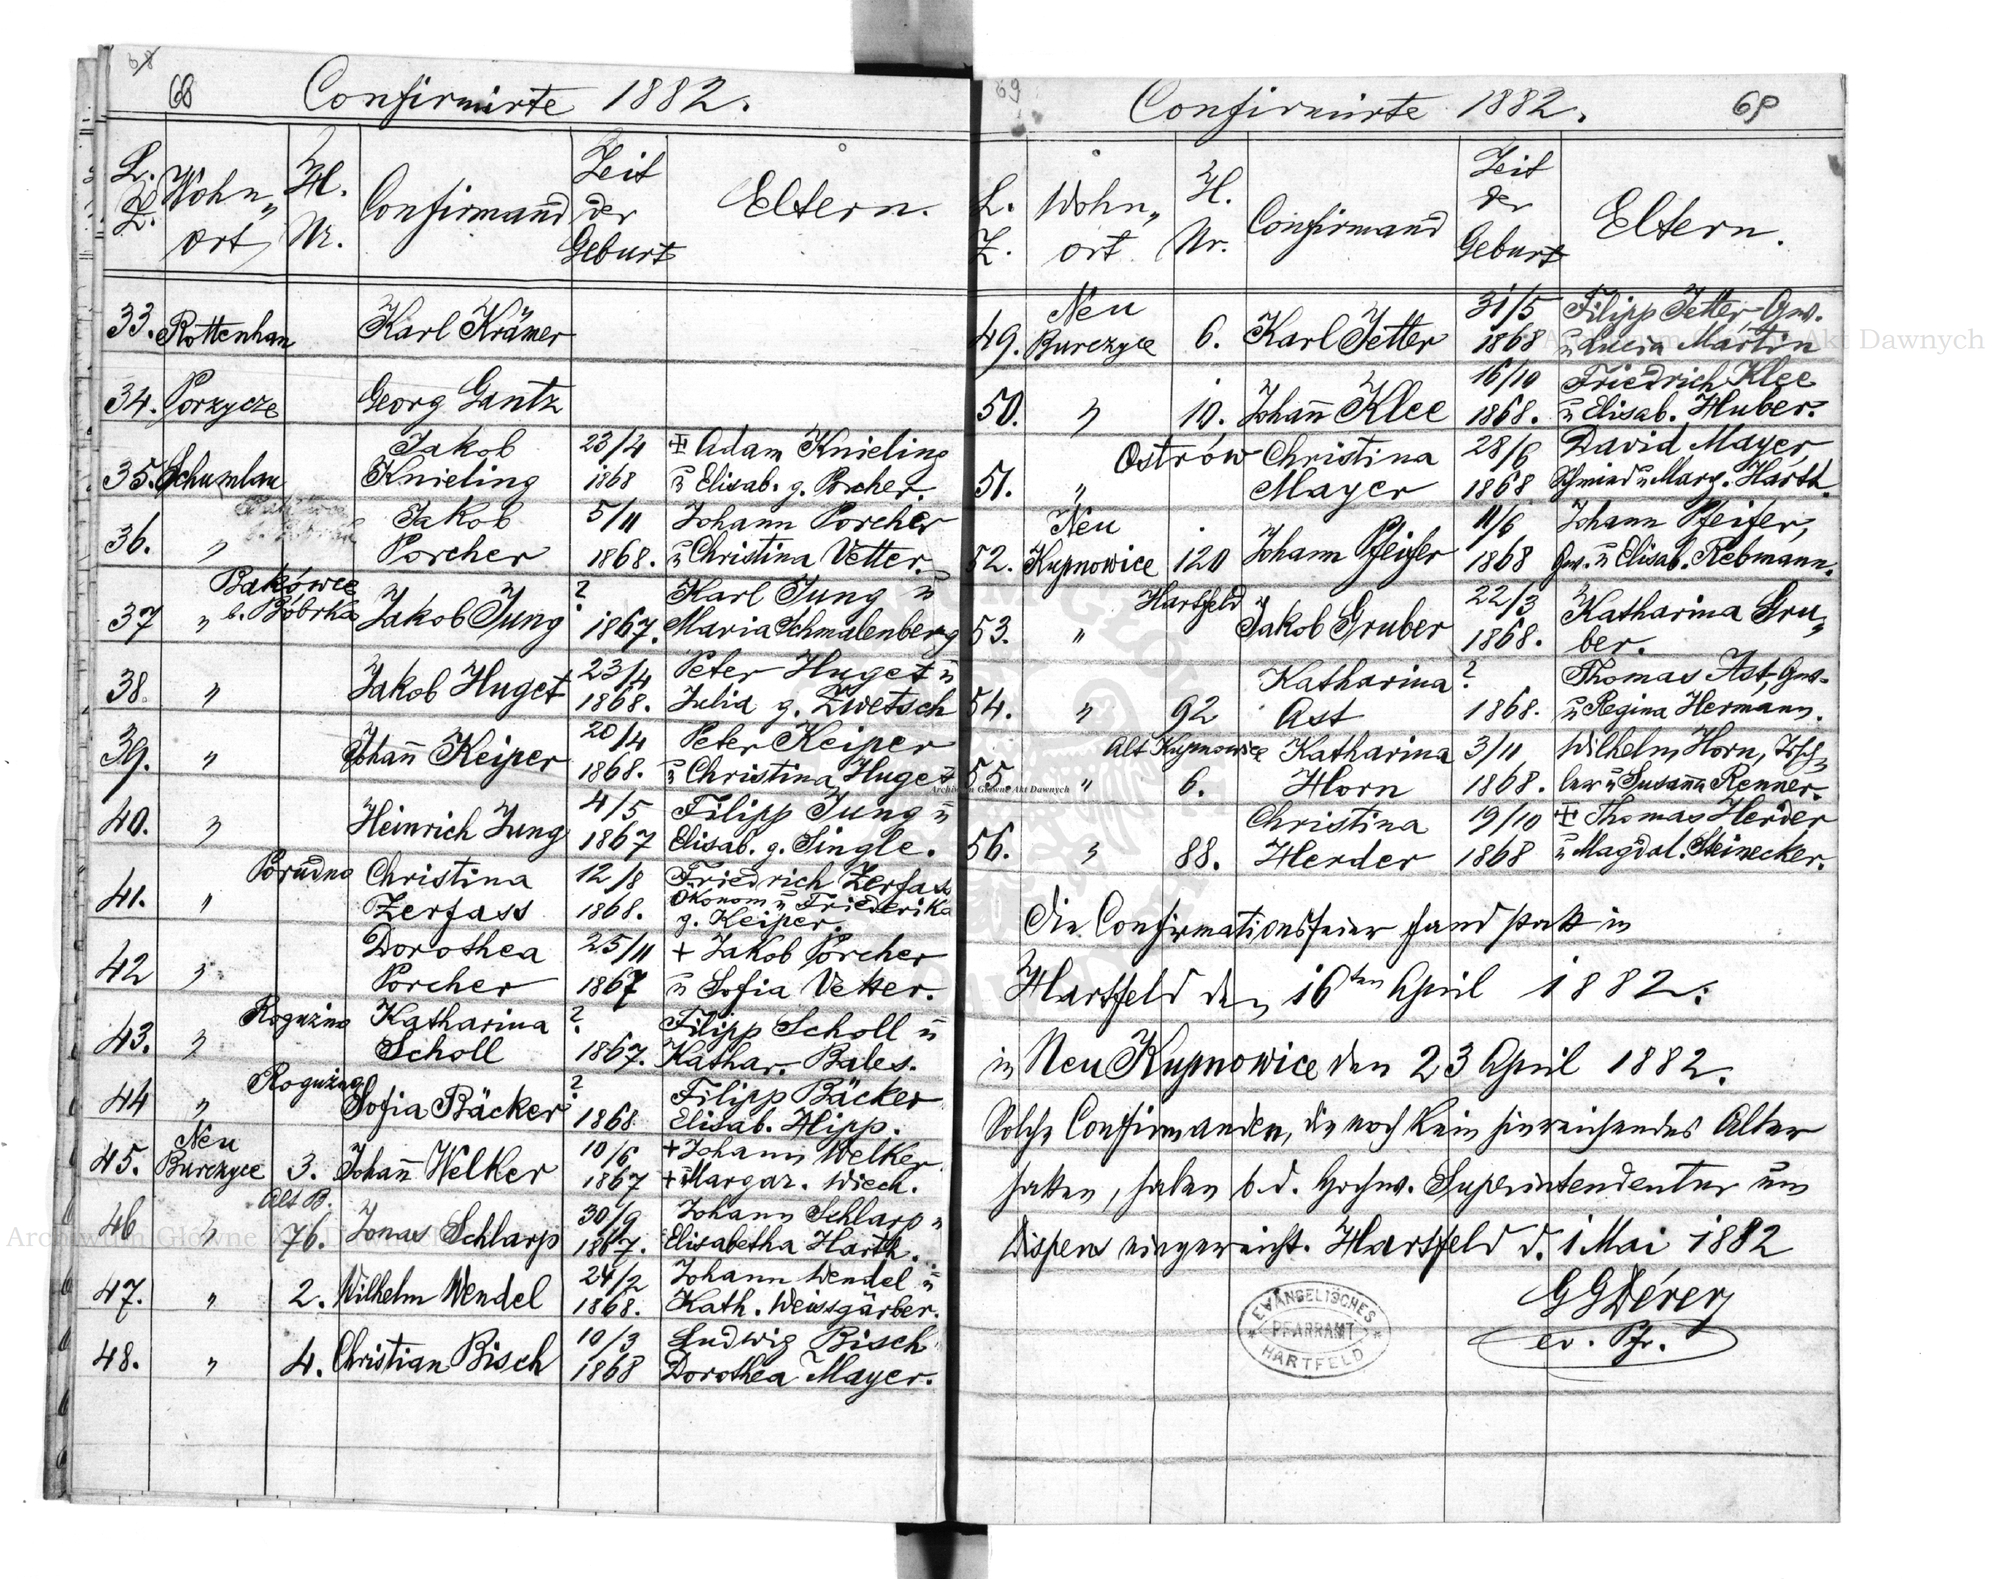 68
Confirmirte 1882.
L. Z.
Wohn„ ort
H. Nr.
Confirmand
Zeit der Geburt
Eltern.
33. Rottenhan Karl Krämer
34. Porzycze Georg Gantz
35. Schumlau Jakob Knieling 23/4 1868 ‡ Adam Knieling ü Elisab. g. Porcher.
36. „ Jakob Porcher 5/11 1868. Johann Porcher ü Christina Vetter.
37 „ Bakowce b. Bobrka Jakob Jung ? 1867. Karl Jung ü Maria Schmalenberg
38. „ Jakob Huget 23/4 1868. Peter Huget ü Julia g. Zwetsch
39. „ Johan̄ Keiper 20/4 1868. Peter Keiper ü Christina Huget
40. „ Heinrich Jung 4/5 1867 Filipp Jung ü Elisab. g. Single.
41. „ Porudno Christina Zerfass 12/8 1868. Friedrich Zerfass Ökonom ü Friederika g. Keiper.
42 „ Dorothea Porcher 25/11 1867 + Jakob Porcher ü Sofia Vetter.
43. „ Roguzno Katharina Scholl ? 1867. Filipp Scholl ü Kathar. Bales.
44 „ Roguzno Sofia Bäcker ? 1868 Filipp Bäcker Elisab. Hipp.
45. Neu Burczyce 3. Johan̄ Welker 10/6 1867 + Johann Welker + Margar. Wiech.
46 „ Alt B. 76. Jonas Schlarp 30/9 1867. Johann Schlarp „ Elisabetha Harth.
47. „ 2. Wilhelm Wendel 24/2 1868. Johann Wendel ü Kath. Weissgärber.
48. „ 4. Christian Bisch 10/3 1868 Ludwig Bisch Dorothea Mayer.
69
69
Confirmirte 1882.
L. Z.
Wohn„ ort
H. Nr.
Confirmand
Zeit der Geburt
Eltern.
49. Neu Burczyce 6. Karl Jetter 31/5 1868 Filipp Jetter Gw. ü Lucia Martin
50. „ 10. Johan̄ Klee 16/10 1868. Friedrich Klee ü Elisab. Huber.
51. „ Ostrów Christina Mayer 28/6 1868 David Mayer, Schmied ü Marg. Harth.
52. Neu Kupnowice 120 Johann Pfeifer 11/6 1868 Johann Pfeifer, Gw. ü Elisab. Rebmann.
53. „ Hartfeld Jakob Gruber 22/3 1868. Katharina Gru„ ber.
54. „ 92 Katharina Ast ? 1868. Thomas Ast, Gw. ü Regina Hermann.
55. „ Alt Kupnowice 6. Katharina Horn 3/11 1868. Wilhelm Horn, ü Susanna Renner.
56. „ 88. Christina Herder 19/10 1868 ‡ Thomas Herder ü Magdal. Steinecker.
Die Confirmationsfeier fand statt in
Hartfeld den 16ten April 1882.
in Neu Kupnowice den 23 April 1882.
Solche Confirmanden, die noch kein hinreichendes Alter
hatten, haben b. d. Hochw. Superintendentur um
Dispens eingereicht. Hartfeld d. 1 Mai 1882
G G Dérer
ev. Pfr.
EVANGELISCHES
PFARRAMT
HARTFELD
Archiwum Główne Akt Dawnych